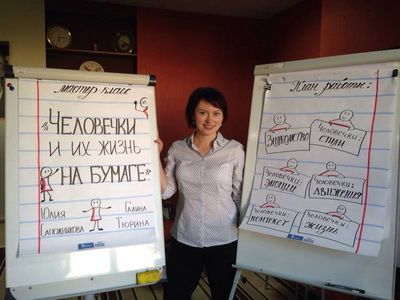 мастер-класс
«Человечки
и их жизнь
на бумаге»
Юлия
Сапожникова
Галина
Тюрина
План работы:
Знакомство
Человечки:
стили
Человечки:
эмоции
Человечки:
движения
Человечки:
контекст
Человечки:
жизнь